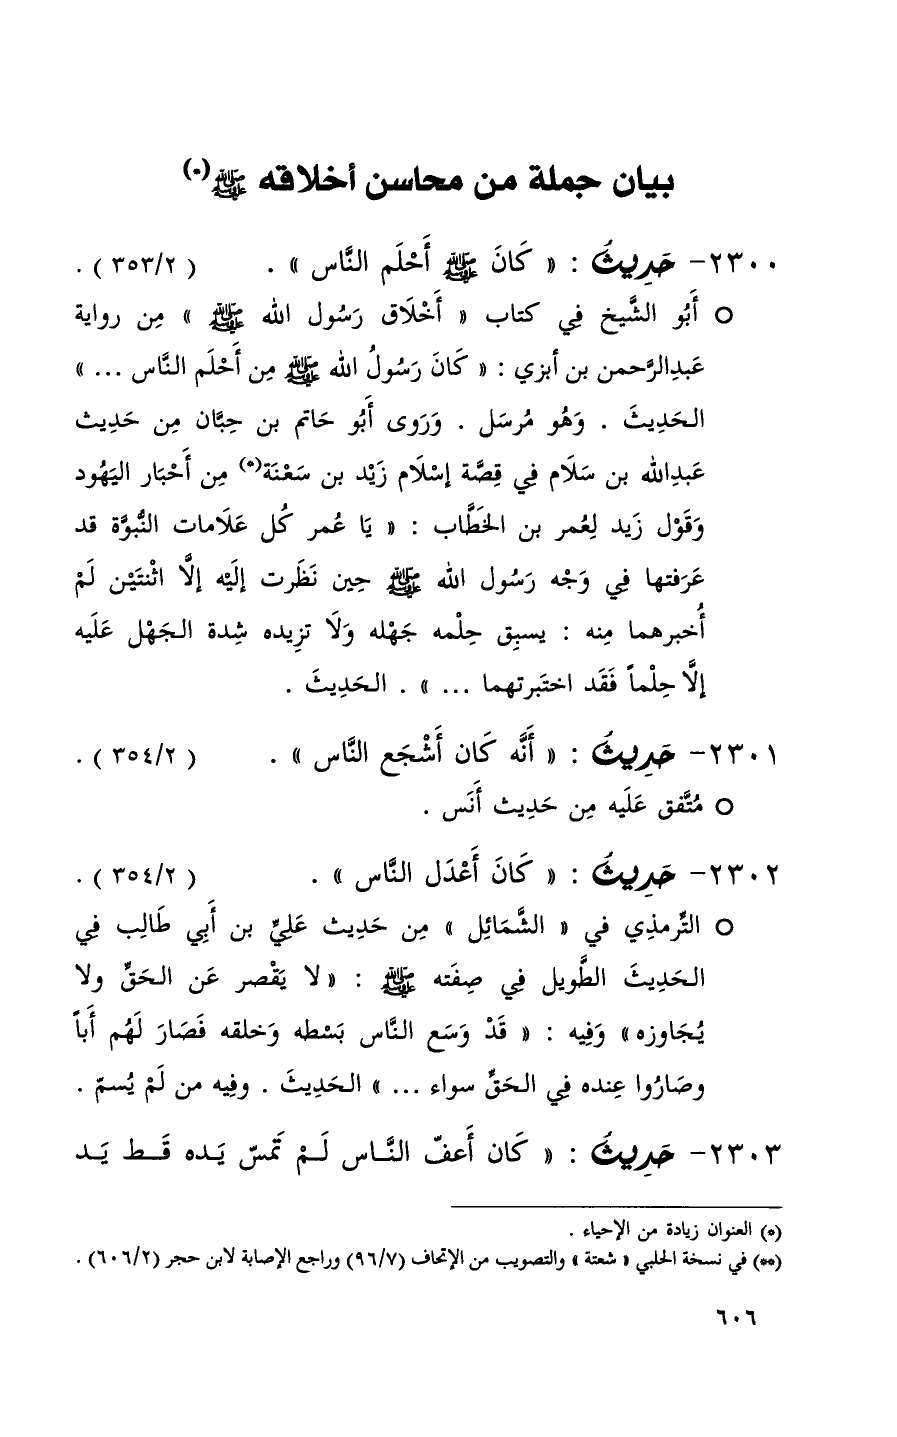 بيان جملة من محاسن أخلاقه ﷺ (*)
٢٣٠٠- حَدِيثُ : « كَانَ ﷺ أَحْلَم النَّاس » . ( ٣٥٣/٢ ) .
○ أَبُو الشَّيخ فِي كتاب « أَخْلَاق رَسُول الله ﷺ » مِن رواية
عَبدِالرَّحمن بن أبزي : « كَانَ رَسُولُ الله ﷺ مِن أَحْلَم النَّاس ... »
الحَدِيثَ . وَهُو مُرسَل . وَرَوى أَبُو حَاتم بن حِبَّان مِن حَدِيث
عَبدِالله بن سَلَام فِي قِصَّة إِسْلَام زَيْد بن سَعْنَة(*) مِن أَحْبَار اليَهُود
وَقَوْل زَيد لِعُمر بن الخَطَّاب : « يَا عُمر كُل عَلَامات النُّبوَّة قد
عَرَفتها فِي وَجْه رَسُول الله ﷺ حِين نَظَرت إلَيْه إلَّا اثْنتَيْن لَمْ
أُخبرهما مِنه : يسبِق حِلْمه جَهْله وَلَا تزِيده شِدة الجَهْل عَلَيه
إلَّا حِلْماً فَقَد اختَبرتهما ... » . الحَدِيثَ .
٢٣٠١- حَدِيثُ : « أَنَّه كَان أَشْجَع النَّاس » . ( ٣٥٤/٢ ) .
○ مُتَّفق عَلَيه مِن حَدِيث أَنَس .
٢٣٠٢- حَدِيثُ : « كَانَ أَعْدَل النَّاس » . ( ٣٥٤/٢ ) .
○ التِّرمذِي في « الشَّمَائِل » مِن حَدِيث عَلِيِّ بن أَبِي طَالِب فِي
الحَدِيثَ الطَّويل فِي صِفَته ﷺ : « لا يَقْصر عَن الحَقِّ ولا
يُجَاوزه» وَفِيه : « قَدْ وَسَع النَّاس بَسْطه وَخلقه فَصَارَ لَهُم أَباً
وصَارُوا عِنده فِي الحَقِّ سواء ... » الحَدِيثَ . وفِيه من لَمْ يُسمّ .
٢٣٠٣- حَدِيثُ : « كَان أَعفّ النَّاس لَمْ تَمسّ يَده قَط يَد
(*) العنوان زيادة من الإحياء .
(**) في نسخة الحلبي « شعتة » والتصويب من الإتحاف (٩٦/٧) وراجع الإصابة لابن حجر (٦٠٦/٢) .
٦٠٦